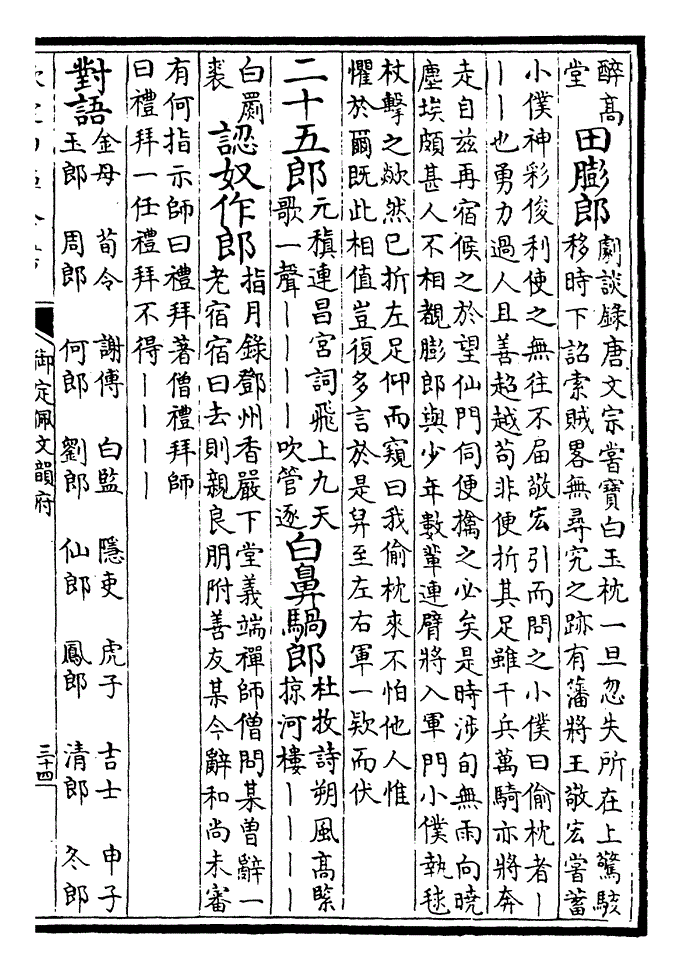 醉髙
堂
田膨郎
劇談錄唐文宗嘗寳白玉枕一旦忽失所在上驚駭
移時下詔索賊畧無尋究之跡有藩將王敬宏嘗蓄
小僕神彩俊利使之無往不届敬宏引而問之小僕曰偷枕者｜
｜｜也勇力過人且善超越苟非便折其足雖千兵萬騎亦將奔
走自兹再宿候之於望仙門伺便擒之必矣是時涉旬無雨向曉
塵埃頗甚人不相覩膨郎與少年數輩連臂將入軍門小僕執毬
杖擊之歘然已折左足仰而窺曰我偷枕來不怕他人惟
懼於爾既此相值豈復多言於是舁至左右軍一欵而伏
二十五郎
元稹連昌宮詞飛上九天
歌一聲｜｜｜｜吹管逐
白鼻騧郎
杜牧詩朔風高緊
掠河樓｜｜｜｜
白罽
裘
認奴作郎
指月錄鄧州香嚴下堂義端禪師僧問某曽辭一
老宿宿曰去則親良朋附善友某今辭和尚未審
有何指示師曰禮拜著僧禮拜師
曰禮拜一任禮拜不得｜｜｜｜
對語
金母 荀令 謝傅 白監 隱吏 虎子 吉士 申子
玉郎 周郎 何郎 劉郎 仙郎 鳳郎 清郎 冬郎
御定佩文韻府
三十四